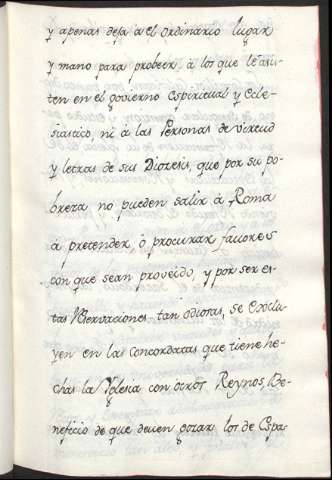 y apenas deja à el ordinario lugar
y mano para probeer, à los que le asis-
ten en el govierno Espiritual y Ecle-
siastico, ni à las Personas de Virtud
y letras de sus Diocesis, que por su po-
breza no pueden salir à Roma
à pretender, ò procurar favores
con que sean proveido, y por ser es-
tas Reservaciones tan odiosas, se exclu-
yen en las concordatas que tiene he-
chas la Yglesia con otros Reynos, Be-
neficio de que deven gozar los de Espa-